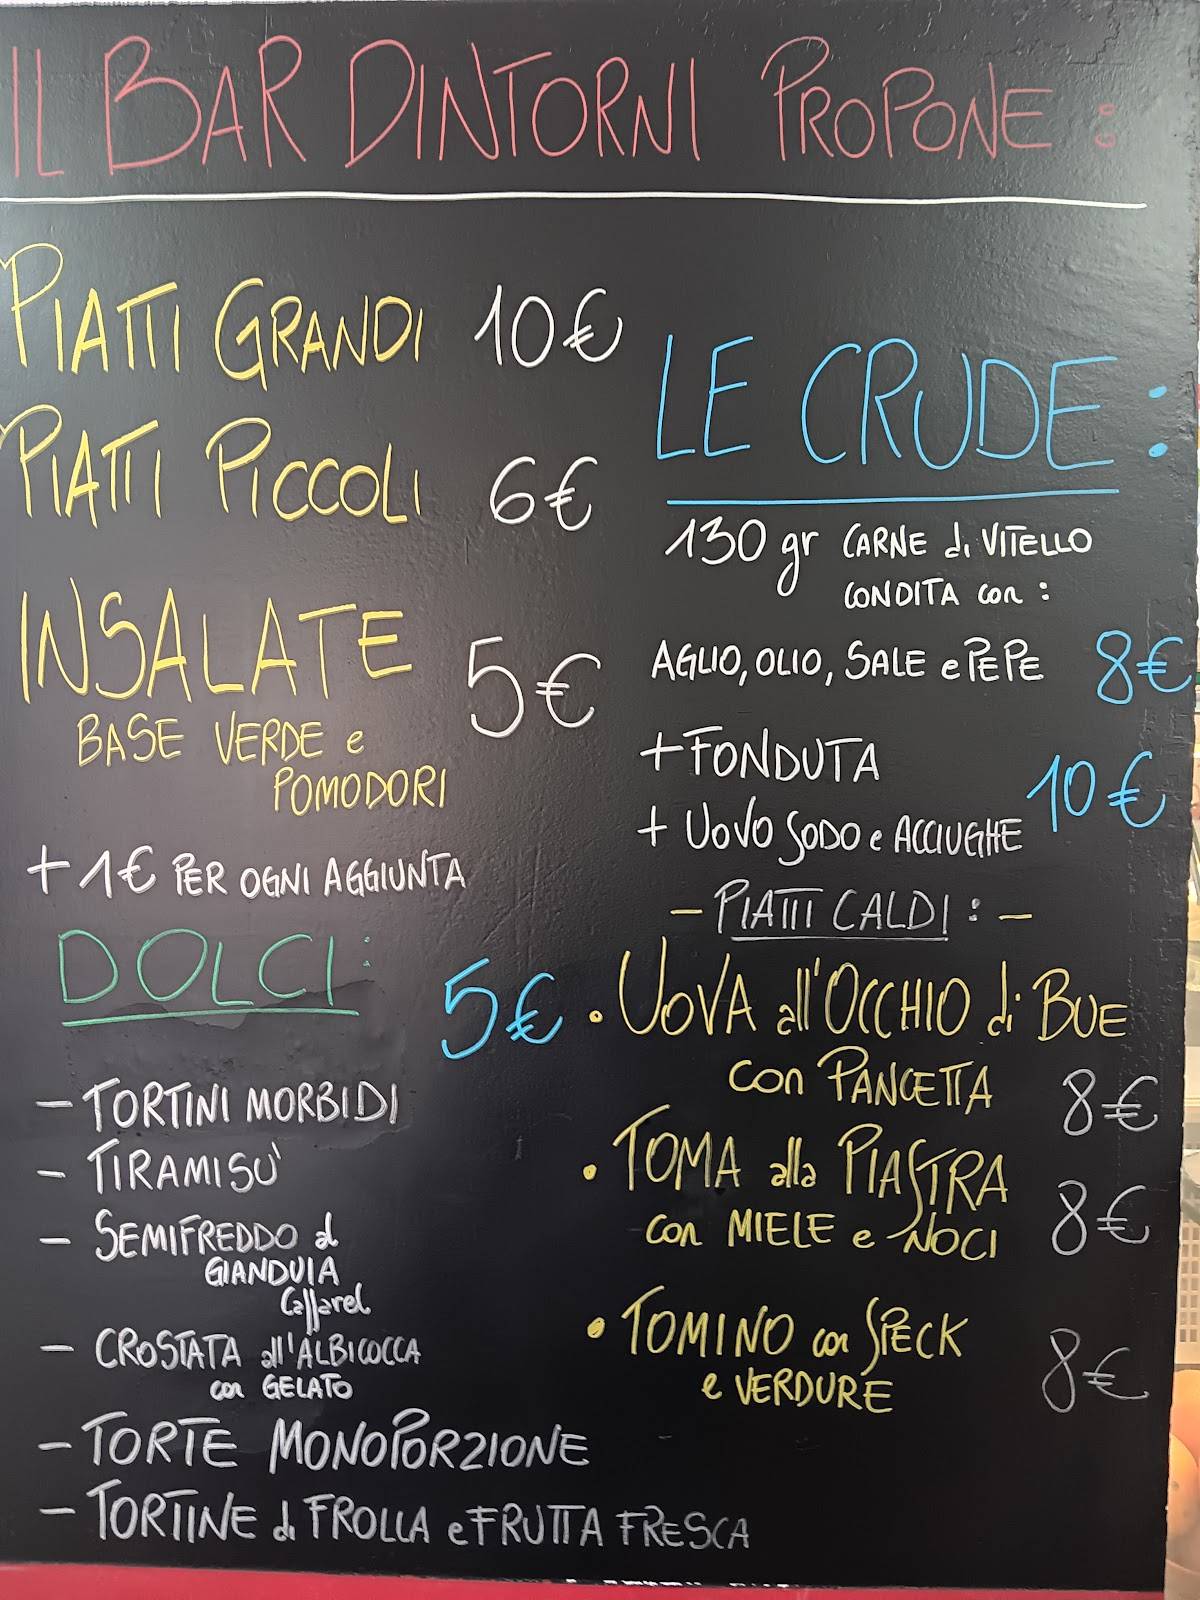 IL BAR DINTORNI PROPONE:
PIATTI GRANDI 10€
PIATTI PICCOLI 6€
INSALATE 5€
BASE VERDE e
POMODORI
+ 1€ PER OGNI AGGIUNTA
DOLCI: 5€
- TORTINI MORBIDI
- TIRAMISU'
- SEMIFREDDO al
GIANDUIA
Caffarel
- CROSTATA all'ALBICOCCA
con GELATO
- TORTE MONOPORZIONE
- TORTINE di FROLLA e FRUTTA FRESCA
LE CRUDE:
130 gr CARNE di VITELLO
CONDITA con:
AGLIO, OLIO, SALE e PEPE 8€
+ FONDUTA
+ UOVO SODO e ACCIUGHE 10€
- PIATTI CALDI: -
• UOVA all'OCCHIO di BUE
con PANCETTA 8€
• TOMA alla PIASTRA
con MIELE e NOCI 8€
• TOMINO con SPECK
e VERDURE 8€